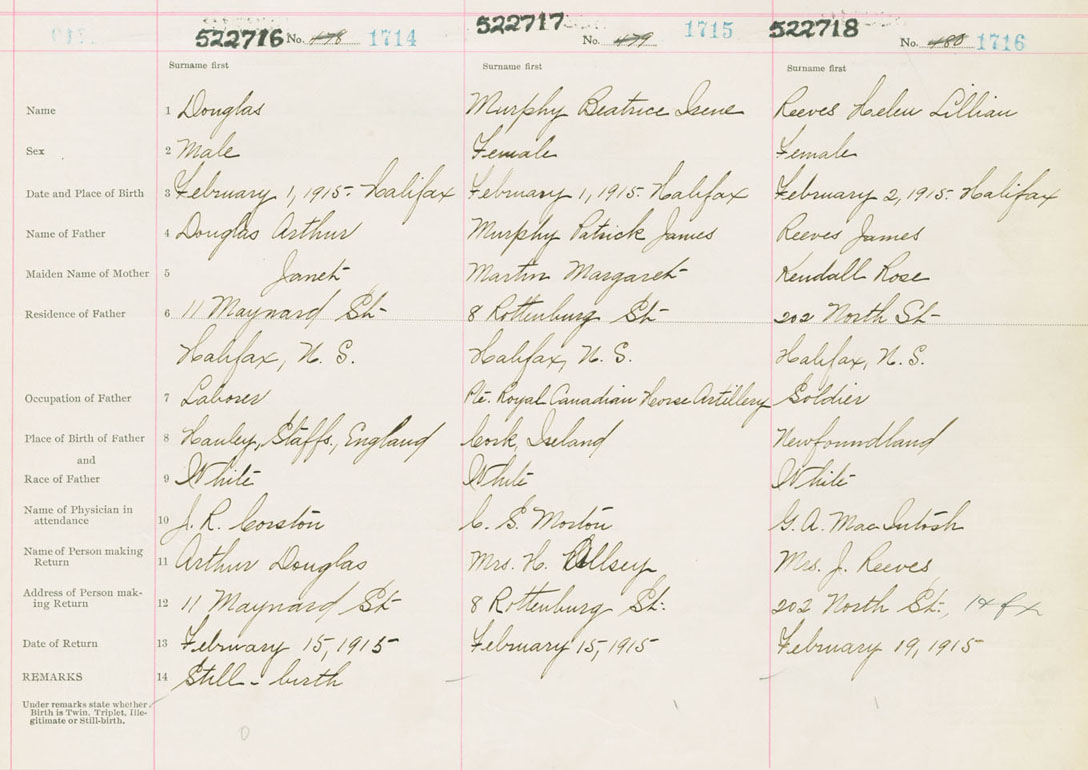 522716 No. 478 1714 522717 No. 479 1715 522718 No. 480 1716
Surname first Surname first Surname first
Name 1 Douglas Murphy Beatrice Irene Reeves Helen Lillian
Sex 2 Male Female Female
Date and Place of Birth 3 February 1, 1915 - Halifax February 1, 1915 - Halifax February 2, 1915 - Halifax
Name of Father 4 Douglas Arthur Murphy Patrick James Reeves James
Maiden Name of Mother 5 Janet Martin Margaret Kendall Rose
Residence of Father 6 11 Maynard St- 8 Rottenburg St- 202 North St-
Halifax, N. S. Halifax, N. S. Halifax, N. S.
Occupation of Father 7 Laborer Pte. Royal Canadian Horse Artillery Soldier
Place of Birth of Father 8 Hanley, Staffs., England Cork, Ireland Newfoundland
and
Race of Father 9 White White White
Name of Physician in
attendance 10 J. R. Corston C. S. Morton G. A. MacIntosh
Name of Person making
Return 11 Arthur Douglas Mrs. H. Mrs. J. Reeves
Address of Person mak-
ing Return 12 11 Maynard St- 8 Rottenburg St. 202 North St., Hfx
Date of Return 13 February 15, 1915 February 15, 1915 February 19, 1915
REMARKS 14 Still-birth
Under remarks state whether
Birth is Twin, Triplet, Ille-
gitimate or Still-birth.